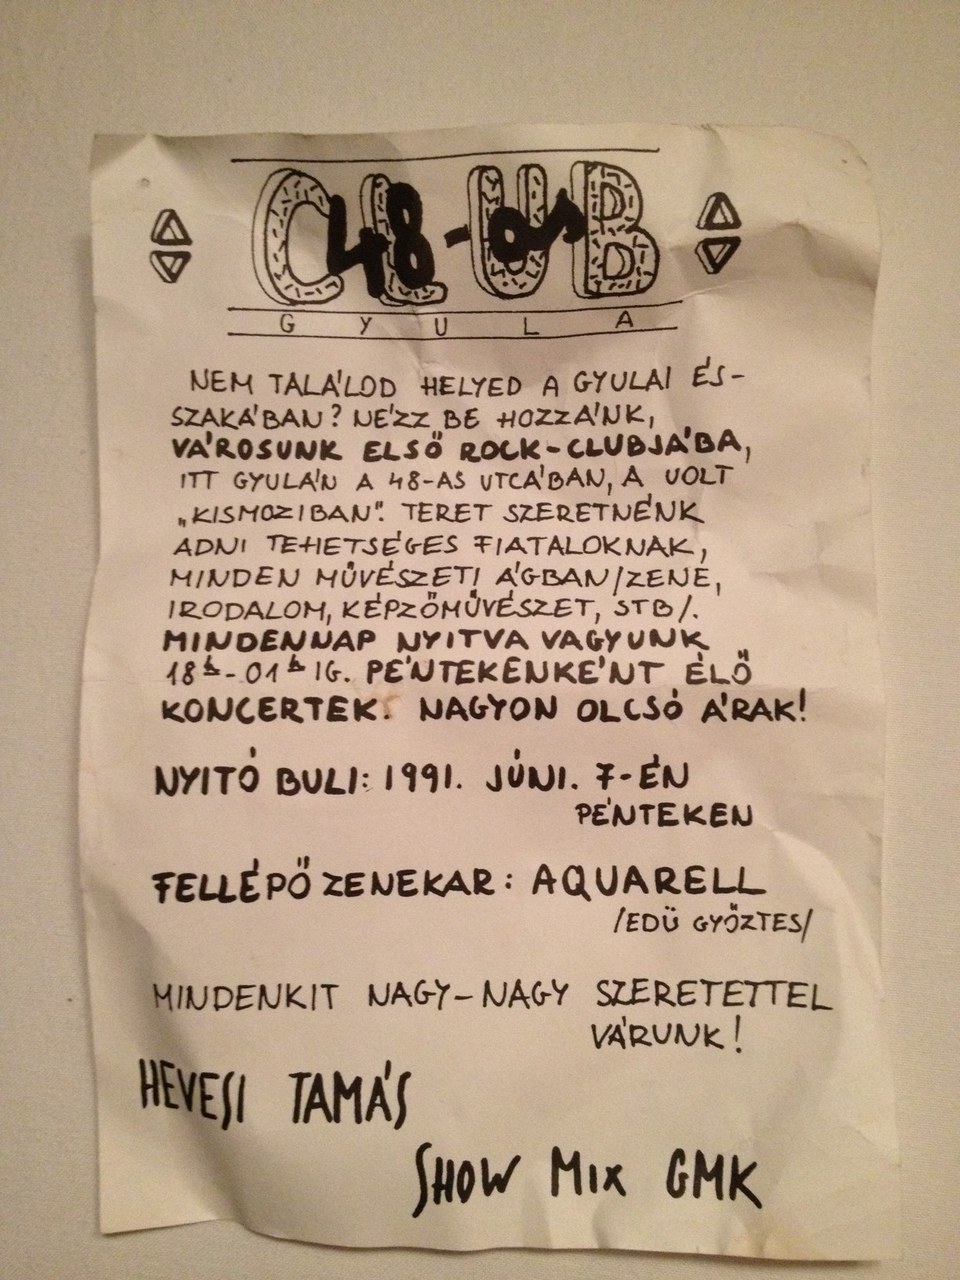 CLUB
48-as
GYULA
NEM TALÁLOD HELYED A GYULAI ÉS-
SZAKÁBAN? NÉZZ BE HOZZÁNK,
VÁROSUNK ELSŐ ROCK-CLUBJÁBA,
ITT GYULÁN A 48-AS UTCÁBAN, A VOLT
„KISMOZIBAN”. TERET SZERETNÉNK
ADNI TEHETSÉGES FIATALOKNAK,
MINDEN MŰVÉSZETI ÁGBAN/ZENE,
IRODALOM, KÉPZŐMŰVÉSZET, STB/.
MINDENNAP NYITVA VAGYUNK
18h-01h IG. PÉNTEKENKÉNT ÉLŐ
KONCERTEK. NAGYON OLCSÓ ÁRAK!
NYITÓ BULI: 1991. JÚNI. 7-ÉN
PÉNTEKEN
FELLÉPŐ ZENEKAR: AQUARELL
/EDÜ GYŐZTES/
MINDENKIT NAGY-NAGY SZERETETTEL
VÁRUNK!
HEVESI TAMÁS
SHOW MIX GMK